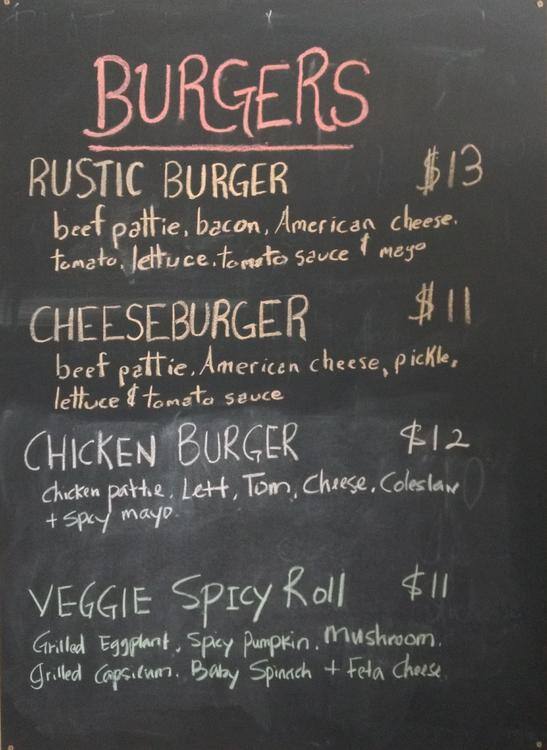 BURGERS
RUSTIC BURGER $13
beef pattie, bacon, American cheese.
tomato, lettuce, tomato sauce & mayo
CHEESEBURGER $11
beef pattie, American cheese, pickle,
lettuce & tomato sauce
CHICKEN BURGER $12
chicken pattie, Lett, Tom, Cheese, Coleslaw
+ spcy mayo.
VEGGIE SPICY Roll $11
Grilled Eggplant, Spicy Pumpkin, Mushroom.
Grilled Capsicum. Baby Spinach + Feta Cheese.